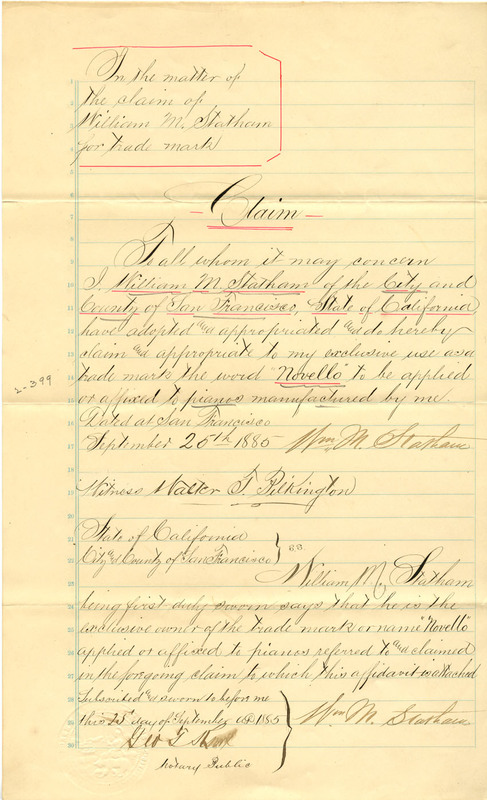 In the matter of
the claim of
William M. Statham
for trade mark
Claim
To all whom it may concern
I, William M. Statham of the City and
County of San Francisco, State of California
have adopted and appropriated and do hereby
claim and appropriate to my exclusive use as a
trade mark the word "Novello" to be applied
or affixed to pianos manufactured by me.
2-399
Dated at San Francisco
September 25th 1885 Wm. M. Statham
Witness Walter T. Pilkington
State of California
City and County of San Francisco } S.S.
William M. Statham
being first duly sworn says that he is the
exclusive owner of the trade mark or name "Novello"
applied or affixed to pianos referred to and claimed
in the foregoing claim to which this affidavit is attached
Subscribed and sworn to before me
this 25 day of September AD 1885 Wm M. Statham
Geo T
Notary Public